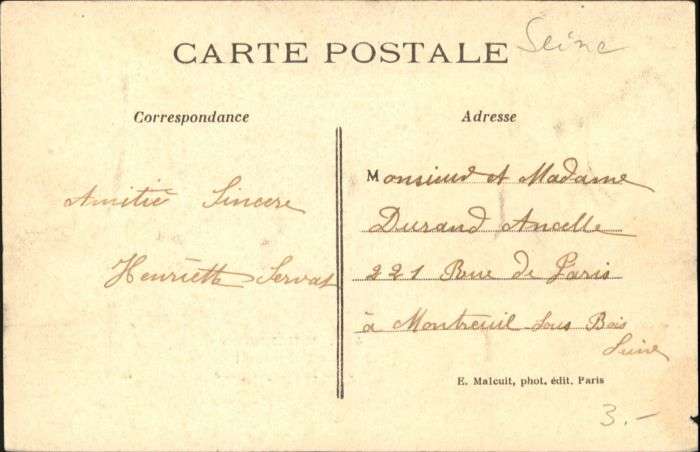 Seine
CARTE POSTALE
Correspondance
Adresse
Amitié Sincere
Henriette Servat
Monsieur et Madame
Durand Ancelle
221 Rue de Paris
à Montreuil sous Bois
Seine
E. Malcuit, phot. édit. Paris
3.-